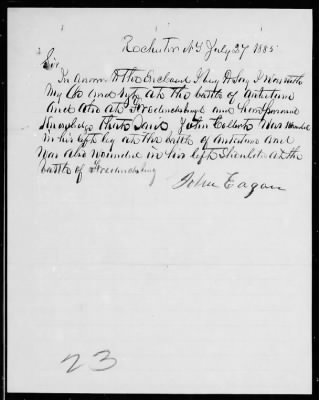 Rochester NY July 27 1885
Sir
In answer to the Enclosed I beg to Say I was with
My Co and Regt at the battle of Antietam
and also at Fredericksburgh and have personal
Knowledge that Said John was wounded
in his left leg at the battle of Antietam and
was also wounded in his left Shoulder at the
battle of Fredericksburg
John Eagan
23